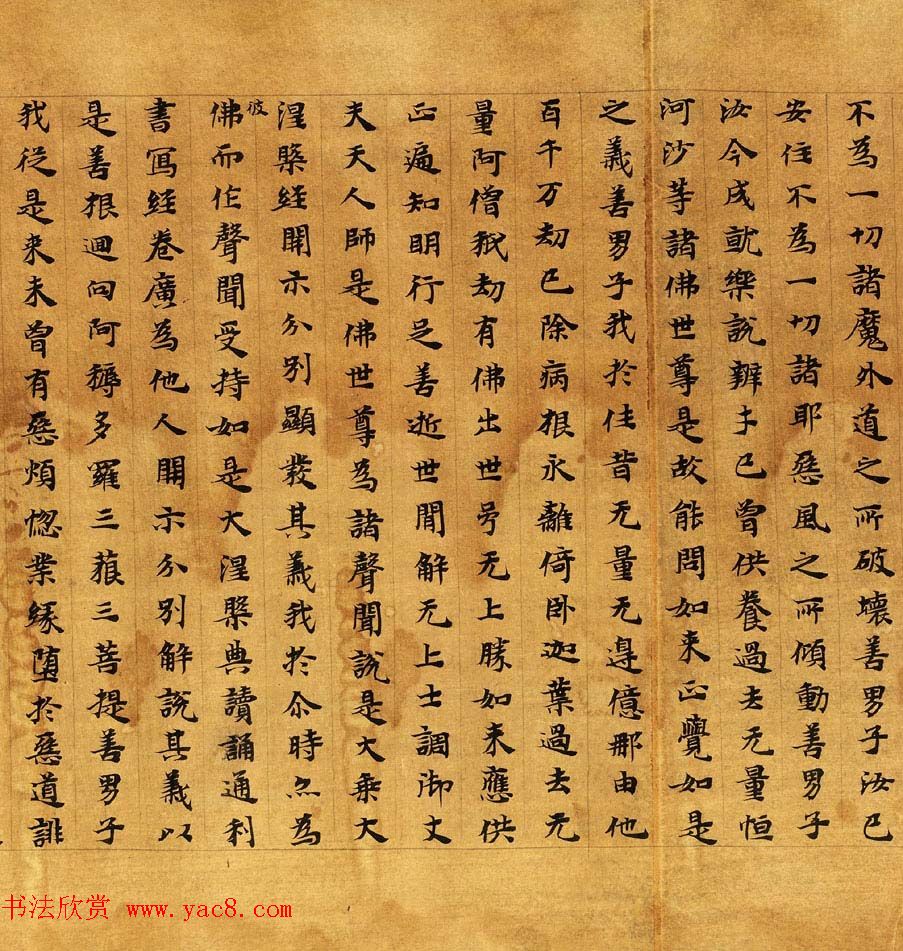 不為一切諸魔外道之所破壞善男子汝已
安住不為一切諸耶惡風之所傾動善男子
汝今成就樂說辯才已曾供養過去无量恒
河沙等諸佛世尊是故能問如来正覺如是
之義善男子我於往昔无量无邊億那由他
百千万劫已除病根永離倚卧迦葉過去无
量阿僧祇劫有佛出世号无上勝如来應供
正遍知明行足善逝世間解无上士調御丈
夫天人師是佛世尊為諸聲聞說是大乗大
涅槃経開示分別顯發其義我於尒時亦為
彼佛而作聲聞受持如是大涅槃典讀誦通利
書寫経卷廣為他人開示分別解說其義以
是善根迴向阿耨多羅三藐三菩提善男子
我從是来未曾有惡煩惚業緣堕於惡道誹
书法欣赏 www.yac8.com